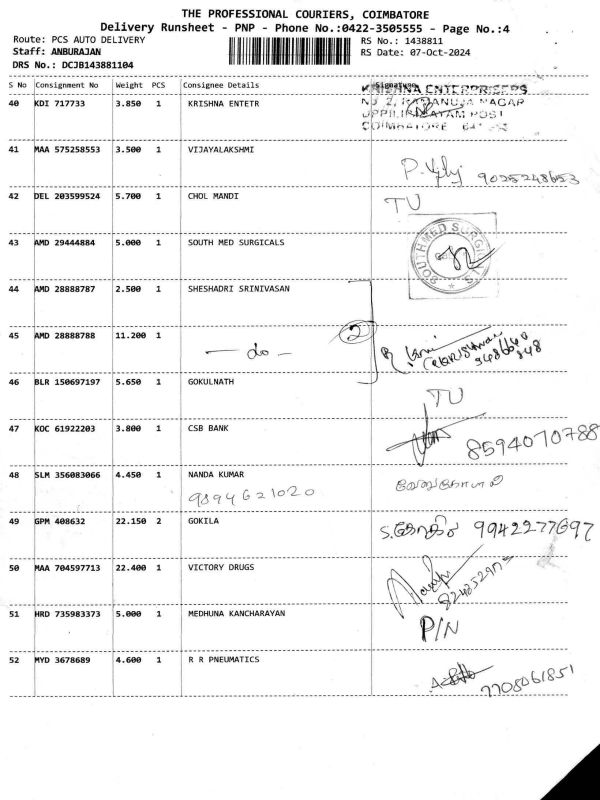 THE PROFESSIONAL COURIERS, COIMBATORE
Delivery Runsheet - PNP - Phone No.:0422-3505555 - Page No.:4
Route: PCS AUTO DELIVERY
RS No.: 1438811
Staff: ANBURAJAN
RS Date: 07-Oct-2024
DRS No.: DCJB143881104
S No Consignment No Weight PCS Consignee Details Signature
40 KDI 717733 3.850 1 KRISHNA ENTETR
KRISHNA ENTERPRISERS
COIMBATORE
41 MAA 575258553 3.500 1 VIJAYALAKSHMI
9025248653
42 DEL 203599524 5.700 1 CHOL MANDI TU
43 AMD 29444884 5.000 1 SOUTH MED SURGICALS
SOUTHMED SURGICALS
44 AMD 28888787 2.500 1 SHESHADRI SRINIVASAN
45 AMD 28888788 11.200 1
— do — 2
46 BLR 150697197 5.650 1 GOKULNATH TU
47 KOC 61922203 3.800 1 CSB BANK
8594070788
48 SLM 356083066 4.450 1 NANDA KUMAR
9894621020
49 GPM 408632 22.150 2 GOKILA
S.கோகிலா 9942277697
50 MAA 704597713 22.400 1 VICTORY DRUGS
51 HRD 735983373 5.000 1 MEDHUNA KANCHARAYAN P/N
52 MYD 3678689 4.600 1 R R PNEUMATICS
7708061851